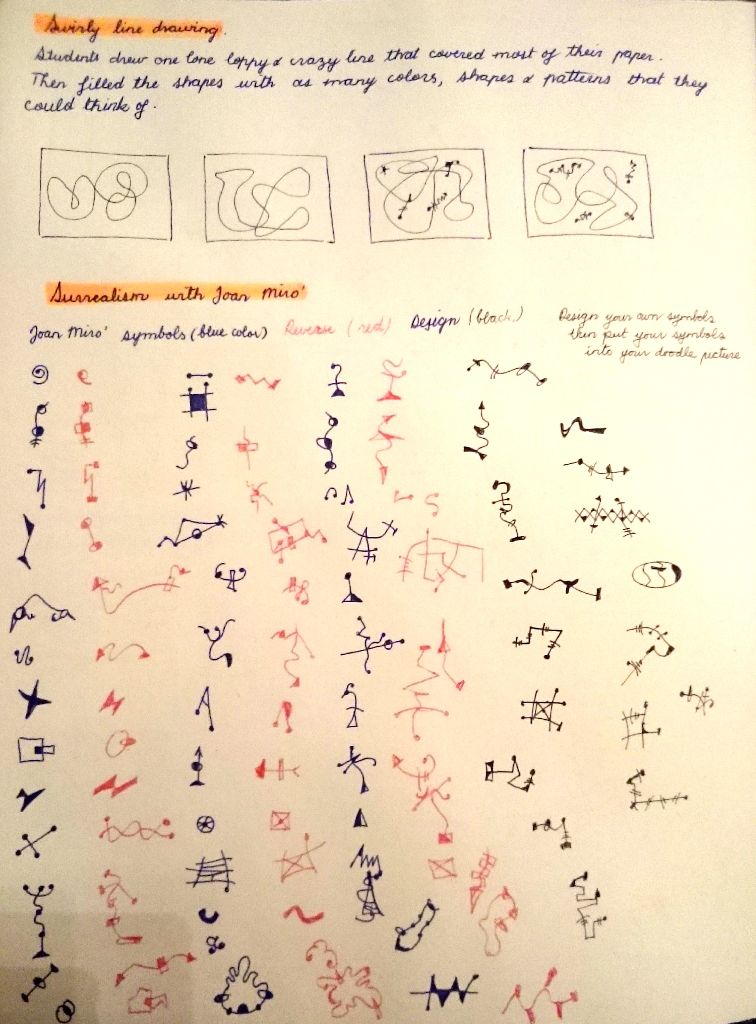 Swirly line drawing.
Students drew one lone loppy & crazy line that covered most of their paper.
Then filled the shapes with as many colors, shapes & patterns that they
could think of.
Surrealism with Joan Miro'
Joan Miro' symbols (blue color) Reverse (red) Design (black)
Design your own symbols
then put your symbols
into your doodle picture